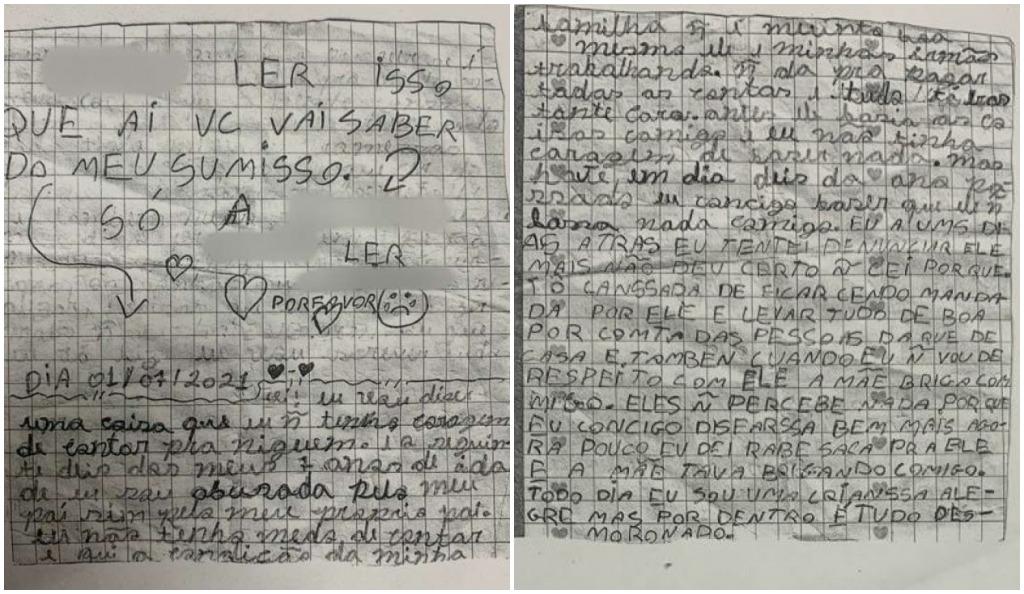 LER ISSO
QUE AÍ VC VAI SABER
DO MEU SUMISSO.
SÓ A
LER
PORFAVOR
DIA 01/07/2021
oi! eu vou dizer
uma coisa que eu ñ tenho coragem
de contar pra niguem. é a siguin
te deis dos meus 7 anos de ida
de eu sou abusada pelo meu
pai sim pelo meu proprio pai.
eu não tenho medo de contar
é qui a condição da minha
familha ñ é muinto boa
mesmo ele e minhas irmãos
trabalhando. ñ da pra pagar
todas as contas e tudo tá bas
tante caro. antes ele fazia as co
isas comigo e eu não tinha
coragem de fazer nada. mas
hoje em dia deis do ano pa
ssado eu concigo fazer que ele ñ
fassa nada comigo. EU A UMS DI-
AS ATRAS EU TENTEI DENUNCIAR ELE
MAIS NÃO DEU CERTO Ñ CEI PORQUE.
TÔ CANSSADA DE FICAR CENDO MANDA
DA POR ELE E LEVAR TUDO DE BOA
POR COMTA DAS PESSOAS DAQUE DE
CASA E TAMBEN CUANDO EU Ñ VOU DE
RESPEITO COM ELE A MÃE BRIGA COM
MIGO. ELES Ñ PERCEBE NADA PORQUE
EU CONCIGO DISFARSSA BEM MAIS AGO-
RA POUCO EU DEI RABE SACA PRA ELE
E A MÃE TAVA BRIGANDO COMIGO.
TODO DIA EU SOU UMA CRIANSSA ALE-
GRE MAS POR DENTRO É TUDO DES-
MORONADO.